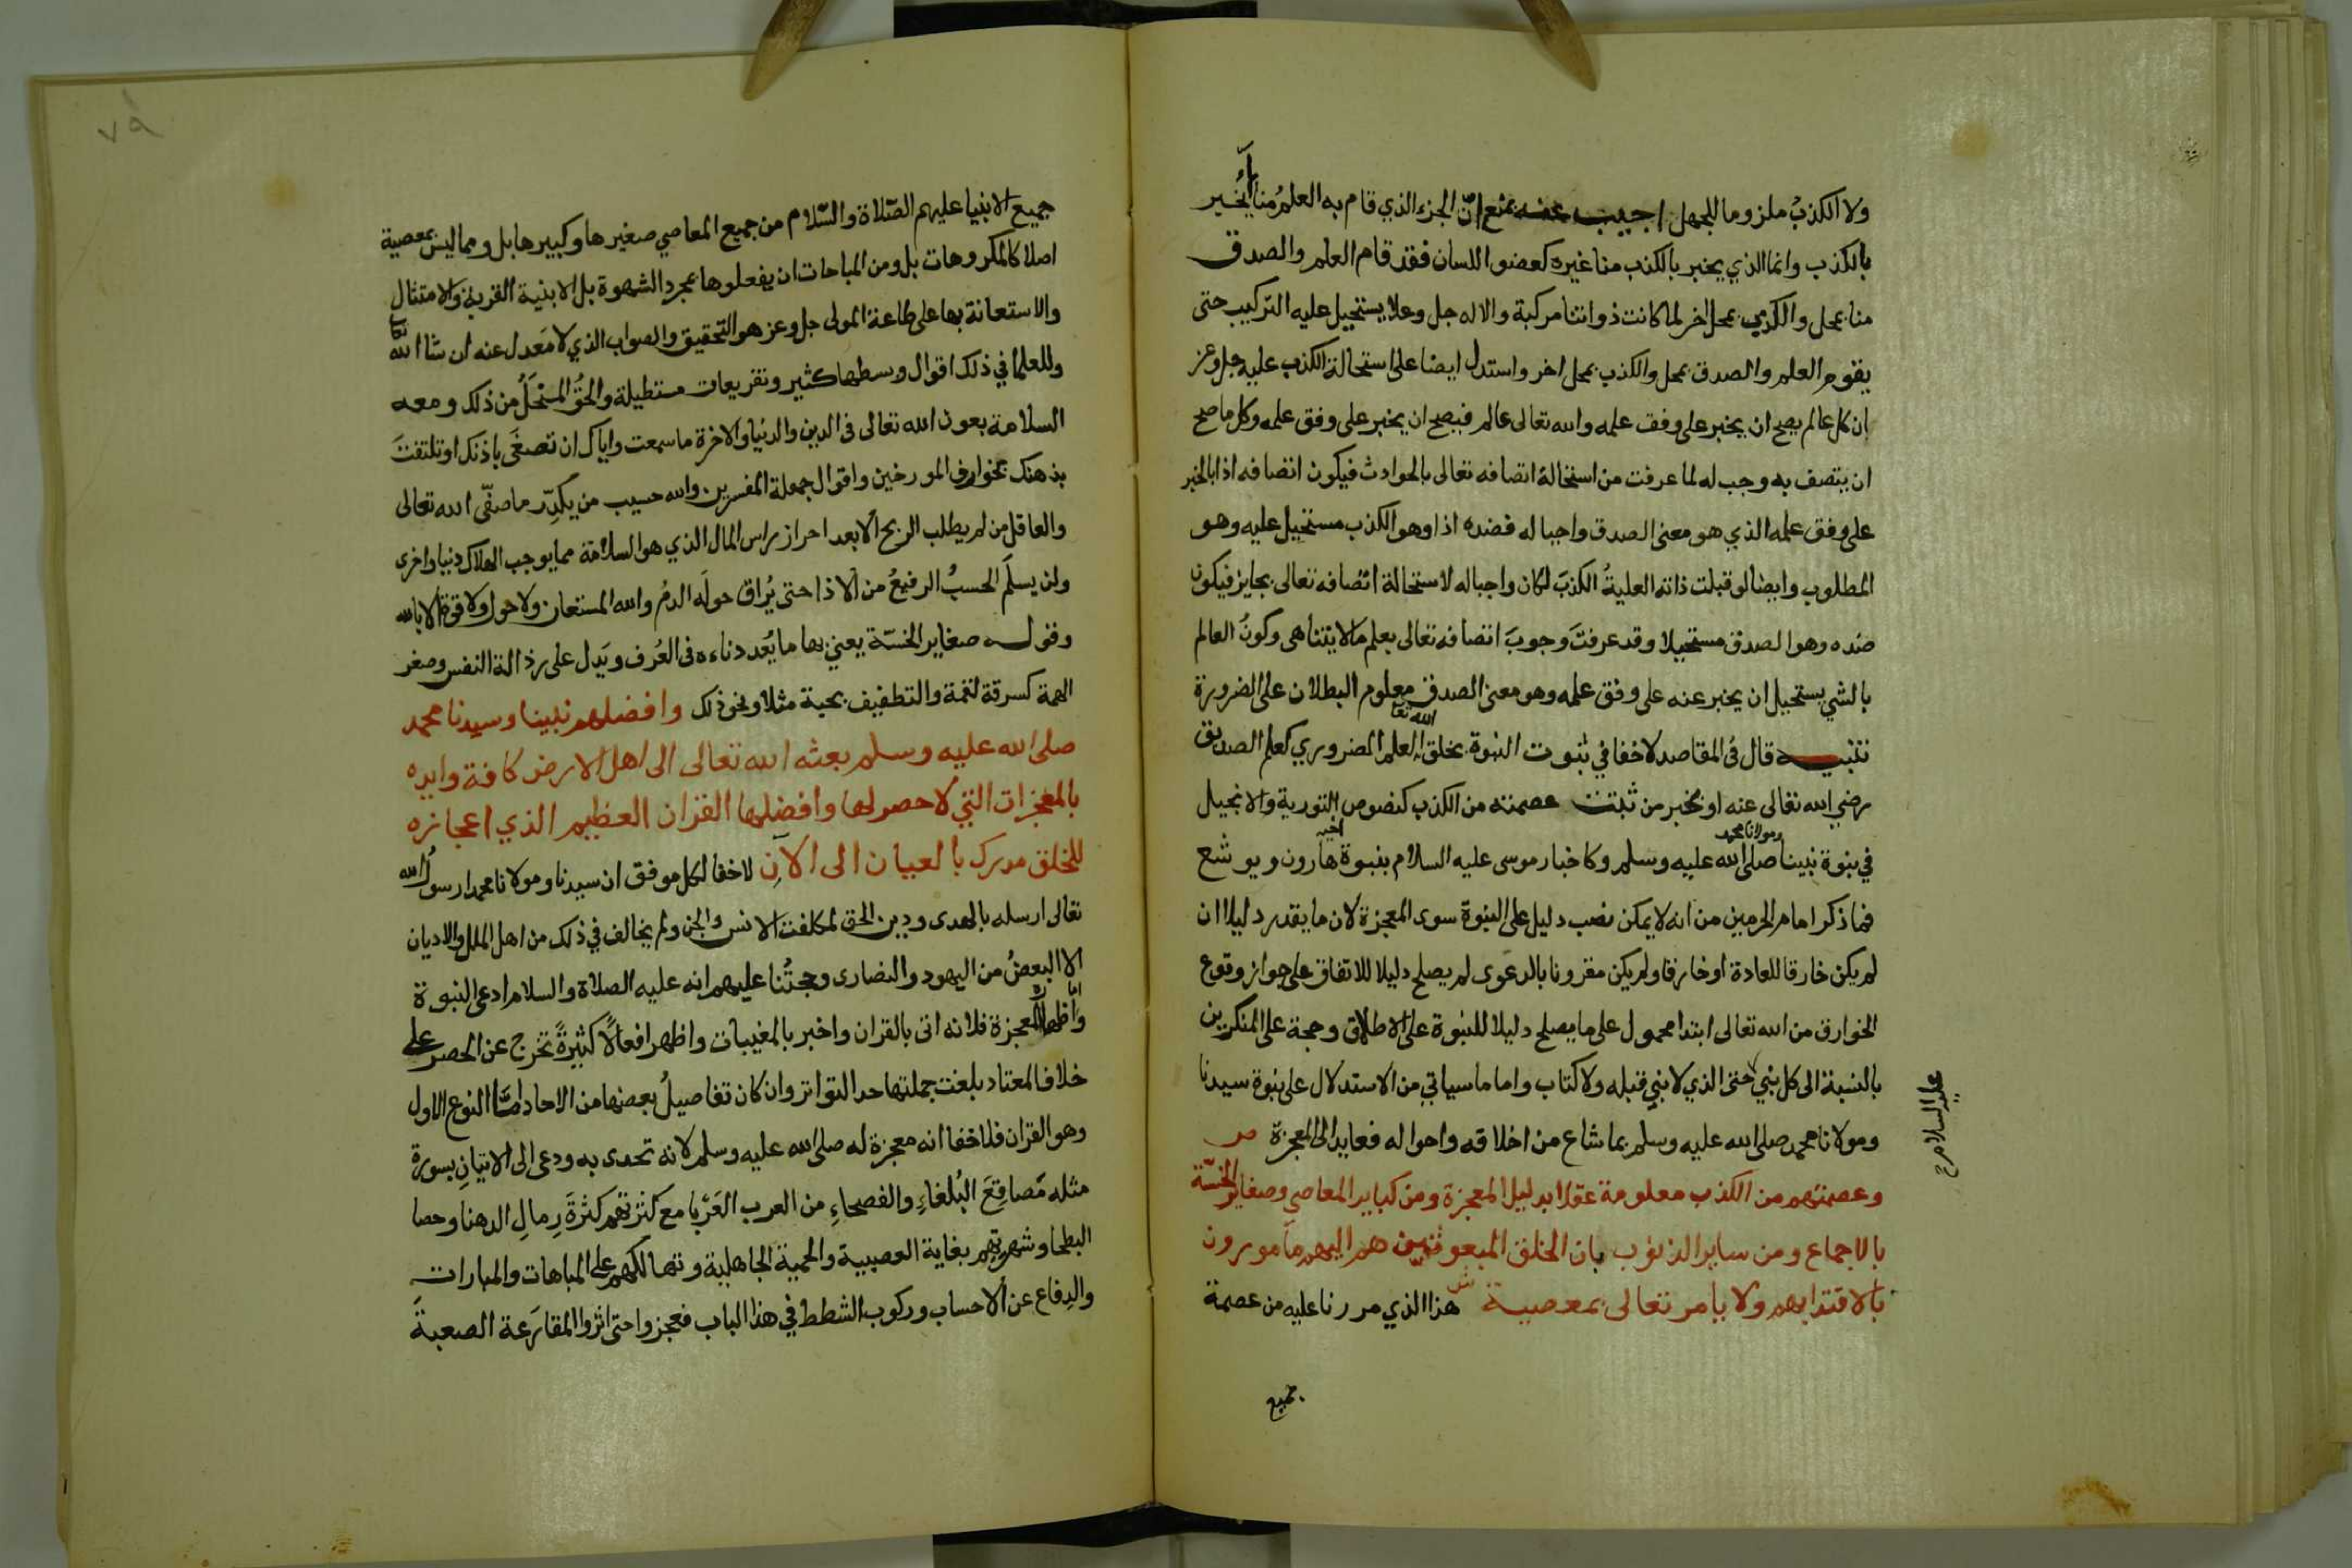 ولا الكذبُ ملزوما للجهل اجيب عنه بمنع انّ الجزء الذي قام به العلمُ منا يُخْبر
بالكذب وانما الذي يخبر بالكذب منا غيره كعضو اللسان فقد قام العلم والصدق
منا بمحل والكذب بمحل اخر لما كانت ذواتنا مركبة والاله جل وعلا يستحيل عليه التركيب حتى
يقوم العلم والصدق بمحل والكذب بمحل اخر واستدل ايضا على استحالة الكذب عليه جل وعز
ان كل عالم يصح ان يخبر على وفق علمه والله تعالى عالم فيصح ان يخبر على وفق علمه وكل ما صح
ان يتصف به وجب له لما عرفت من استحالة اتصافه تعالى بالحوادث فيكون اتصافه اذا بالخبر
على وفق علمه الذي هو معنى الصدق واجبا له فضده اذا وهو الكذب مستحيل عليه وهو
المطلوب وايضا لو قبلت ذاته العليةُ الكذبَ لكان واجبا له لاستحالة اتصافه تعالى بجايز فيكون
ضده وهو الصدق مستحيلا وقد عرفتَ وجوبَ اتصافه تعالى بعلم ما لا يتناهى وكونُ العالم
بالشي يستحيل ان يخبر عنه على وفق علمه وهو معنى الصدق معلوم البطلان على الضرورة
تنبيه قال في المقاصد لا خفا في ثبوت النبوة بخلق الله تعا العلم الضروري كعلم الصديق
رضي الله تعالى عنه او بخبر من ثبتت عصمته من الكذب كنصوص التورية والانجيل
في نبوة نبينا ومولانا محمد صلى الله عليه وسلم وكاخبار موسى عليه السلام بنبوة اخيه هارون ويوشع
عليهم السلام صح
فما ذكر امام الحرمين من انه لا يمكن نصب دليل على النبوة سوى المعجزة لان ما يقدر دليلا ان
لم يكن خارقا للعادة او خارقا ولم يكن مقرونا بالدعوى لم يصلح دليلا للاتفاق على جواز وقوع
الخوارق من الله تعالى ابتدا محمول على ما يصلح دليلا للنبوة على الاطلاق وحجة على المنكرين
بالنسبة الى كل نبي حتى الذي لا نبي قبله ولا كتاب واما ما سياتي من الاستدلال على نبوة سيدنا
ومولانا محمد صلى الله عليه وسلم بما شاع من اخلاقه واحواله فعايد الى المعجزة ص
وعصمتهم من الكذب معلومة عقلا بدليل المعجزة ومن كباير المعاصي وصغاير الخسّة
بالاجماع ومن ساير الذنوب بان الخلق المبعوثين هم اليهم مامورون
بالاقتدا بهم ولا يامر تعالى بمعصية ش هذا الذي مررنا عليه من عصمة
جميع
٧٩
جميع الانبيا عليهم الصّلاة والسّلام من جميع المعاصي صغيرها وكبيرها بل ومما ليس بمعصية
اصلا كالمكروهات بل ومن المباحات ان يفعلوها بمجرد الشهوة بل الا بنية القربة والامتثال
والاستعانة بها على طاعة المولى جل وعز هو التحقيق والصواب الذي لا مَعدل عنه ان شا الله تعا
وللعلما في ذلك اقوال وبسطها كثير وتفريعات مستطيلة والحقُّ المنْحَلُّ من ذلك ومعه
السلامة بعون الله تعالى في الدين والدنيا والاخرة ما سمعت واياك ان تصغَى باذنك او تلتفتَ
بذهنك بخوارف المورخين واقوال جملة المفسرين والله حسيب من يكدِّر ما صفّى الله تعالى
والعاقل من لم يطلب الربح الا بعد احراز راس المال الذي هو السلامة مما يوجب الهلاك دنيا واخرى
ولن يسلَم الحسبُ الرفيعُ من الاذا حتى يُراق حولَه الدمُ والله المستعان ولا حول ولا قوة الا بالله
وقوله صغاير الخسّة يعني بها ما يُعد دناءه في العُرف ويَدل على رذالة النفس وصغر
الهمة كسرقة لقمة والتطفيف بحبة مثلا ونحو ذلك وافضلهم نبينا وسيدنا محمد
صلى الله عليه وسلم بعثه الله تعالى الى اهل الارض كافة وايده
بالمعجزات التي لا حصر لها وافضلها القران العظيم الذي اعجازه
للخلق مدرك بالعيان الى الآن لا خفا لكل موفق ان سيدنا ومولانا محمدا رسولُ الله
تعالى ارسله بالهدى ودين الحق لمكلفت الانس والجن ولم يخالف في ذلك من اهل الملل والاديان
الا البعضُ من اليهود والنصارى وحجتُنا عليهم انه عليه الصلاة والسلام ادعى النبوة
واظهر المعجزة فلانه اتى بالقران واخبر بالمغيبات واظهر افعالاً كثيرةً تخرج عن الحصر على
خلاف المعتاد بلغت جملتها حد التواتر وان كان تفاصيلُ بعضها من الاحاد امّا النوع الاول
وهو القران فلا خفا انه معجزة له صلى الله عليه وسلم لانه تحدى به ودعى الى الاتيانِ بسورة
مثله مَصاقِعَ البُلغاءِ والفصحاءِ من العرب العَرْبا مع كثرتهم كثرةَ رِمالِ الدهنا وحصا
البطحا وشهرتهم بغاية العصبية والحمية الجاهلية وتهالكهم على المباهات والمبارات
والدِفاع عن الاحساب وركوب الشطط في هذا الباب فعجزوا حتى اثروا المقارَعة الصعبةَ